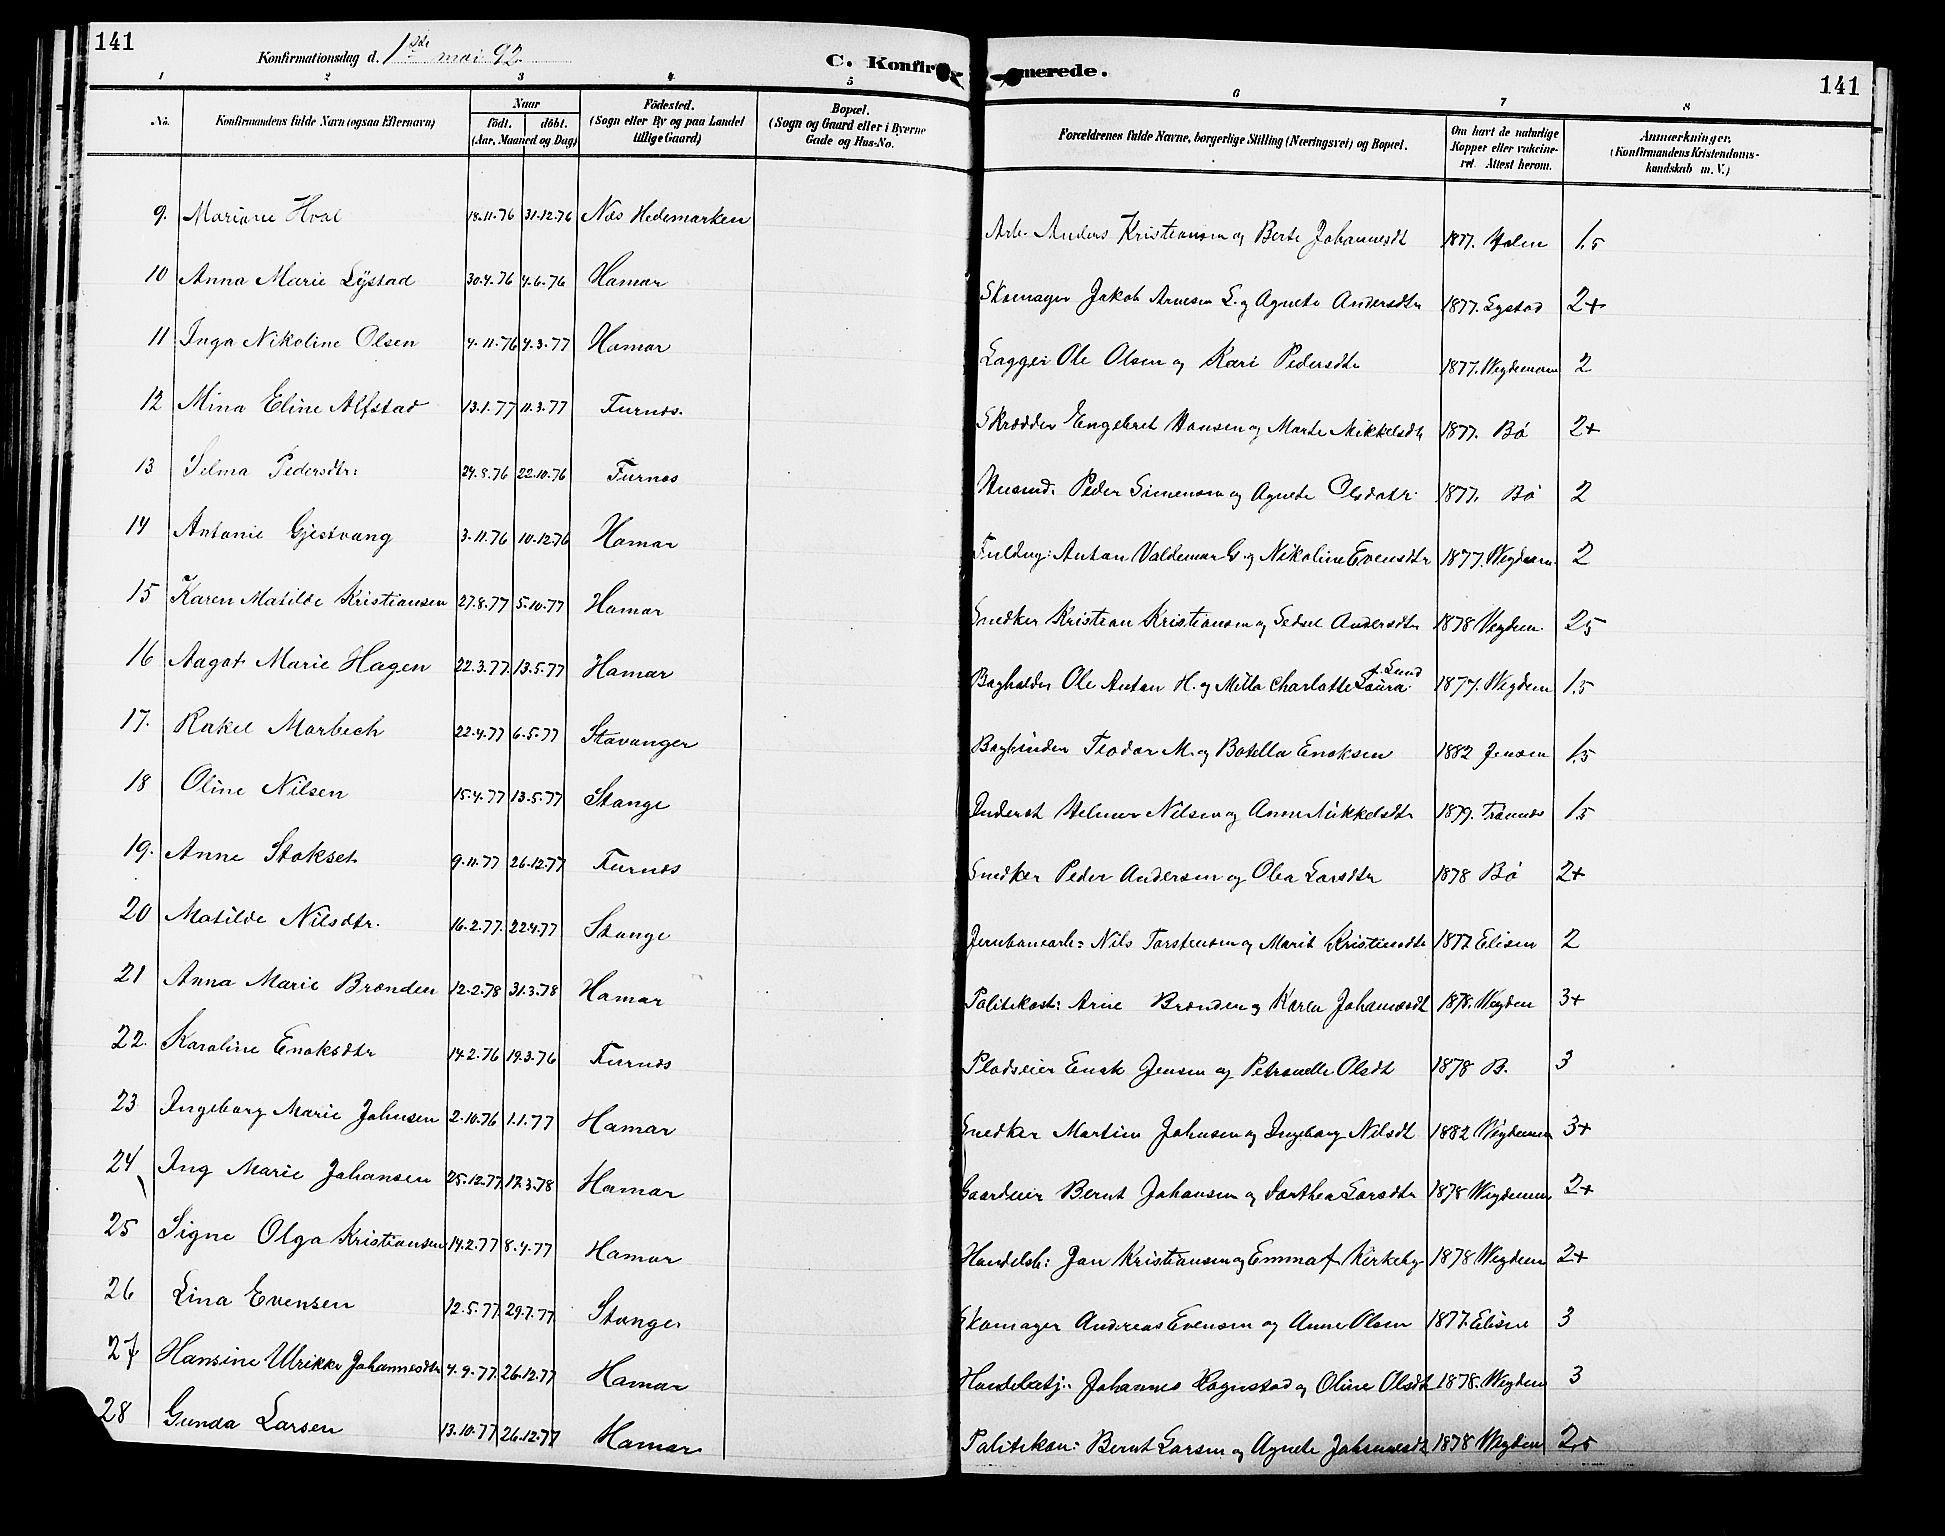 141
Konfirmationsdag d. 1ste mai 92.
C. Konfir merede.
141
1 2 3 4 5 6 7 8
No. Konfirmandens fulde Navn (ogsaa Efternavn) Naar født. døbt. (Aar, Maaned og Dag) Fødested. (Sogn eller By og paa Landet tillige Gaard) Bopæl. (Sogn og Gaard eller i Byerne Gade og Hus-No. Forældrenes fulde Navne, borgerlige Stilling (Næringsvei) og Bopæl. Om havt de naturlige Kopper eller vakcineret. Attest herom. Anmærkninger, (Konfirmandens Kristendomskundskab m. V.)
9. Mariane Hval 18.11.76 31.12.76 Næs Hedemarken Arb. Anders Kristiansen og Berte Johannesdt 1877. Holen 1,5
10 Anna Marie Lystad 30.4.76 4.6.76 Hamar Skomager Jakob Arnesen L. og Agnete Andersdtr 1877. Lystad 2+
11 Inga Nikoline Olsen 4.11.76 4.3.77 Hamar Lagger Ole Olsen og Kari Pedersdtr 1877. 2
12 Mina Eline Alfstad 13.1.77 11.3.77 Furnæs. Skrædder Engebret Hansen og Marte Mikkelsdt 1877. Bø 2+
13 Selma Pedersdtr: 24.8.76 22.10.76 Furnæs Husmd. Peder Simensen og Agnete Olsdatr. 1877. Bø 2
14 Antonie Gjestvang 3.11.76 10.12.76 Hamar Fuldmg: Anton Valdemar G. og Nikoline Evensdtr 1877. 2
15 Karen Matilde Kristiansen 27.8.77 5.10.77 Hamar Snedker Kristian Kristiansen og Sedsel Andersdtr 1878 25
16 Aagot Marie Hagen 22.3.77. 13.5.77 Hamar Bogholder Ole Anton H. og Milla Charlotte Laura f. Lund 1877. Wegdem 1,5
17. Rakel Marbech 22.4.77 6.5.77 Stavanger Bogbinder Teodor M. og Botella Enoksen 1882 Jensen 1,5
18 Oline Nilsen 15.4.77 13.5.77 Stange Inderst Helmer Nilsen og Anne Mikkelsdtr 1877. 1,5
19. Anne Stokset 9.11.77 26.12.77 Furnæs Snedker Peder Andersen og Olea Larsdtr 1878 Bø 2+
20 Matilde Nilsdtr. 16.2.77. 22.4.77 Stange Jernbanearb: Nils Torstensen og Marit Kristiansdtr 1877 Elisen 2
21 Anna Marie Brænden 12.2.78 31.3.78 Hamar Politikost: Arne Brænden og Karen Johannesdt 1878. Wegdem 3+
22. Karoline Enoksdtr 14.2.76 19.3.76 Furnæs Pladseier Enok Jensen og Petronelle Olsdt 1878 B. 3
23 Ingeborg Marie Johnsen 2.10.76 1.1.77 Hamar Snedker Martin Johnsen og Ingeborg Nilsdt 1882 3+
24 Ing Marie Johansen 25.12.77. 17.3.78 Hamar Gaardeier Bernt Johansen og Dorthea Larsdtr 1878 2+
25 Signe Olga Kristiansen 14.2.77 8.4.77 Hamar Handelsb: Jan Kristiansen og Emma f Kirkeby 1878 Wegdem 2+
26 Lina Evensen 12.5.77. 29.7.77. Stange. Skomager Andreas Evensen og Anne Olsen 1877. Elisen 3
27 Hansine Ulrikke Johannesdtr 4.9.77. 26.12.77 Hamar Handelbetj. Johannes Rognstad og Oline Olsdt 1878. Wegdem 3
28 Gunda Larsen 13.10.77 26.12.77 Hamar Politikon: Bernt Larsen og Agnete Johannesdt 1878 Wegdem 2,5